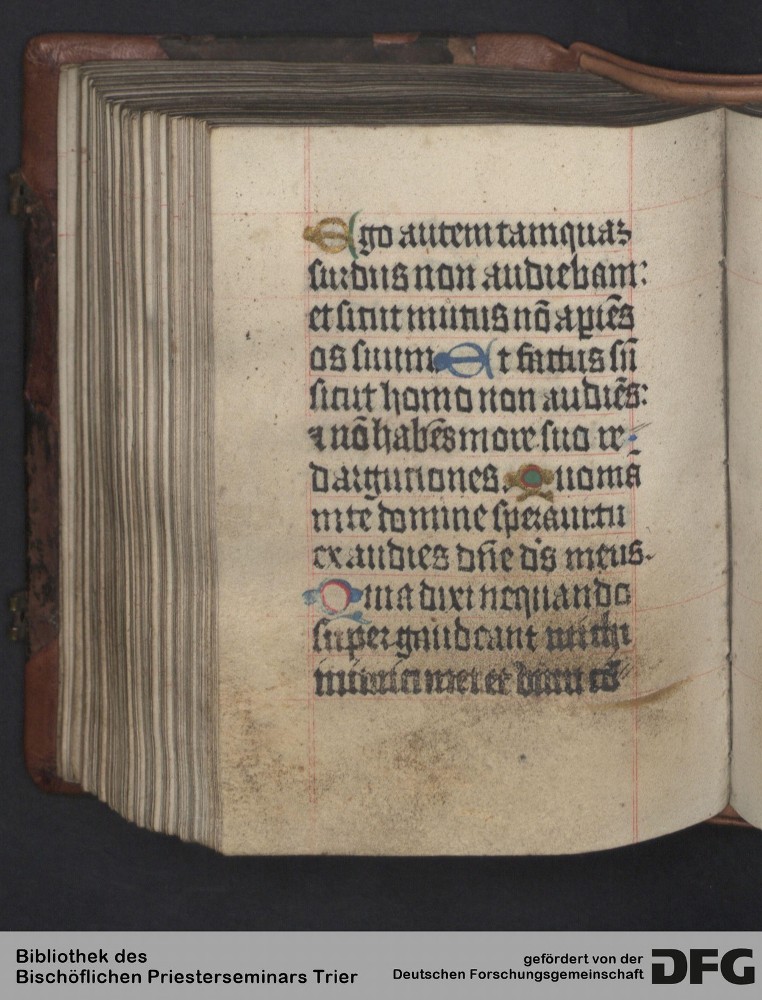 Ego autem tamquaȝ
surdus non audiebam:
et sicut mutus nō apiēs
os suum Et factus sū
sicut homo non audiēs:
⁊ nō habēs in ore suo re-
dargutiones. Quoniā
in te domine speraui tu
exaudies dn̄e ds̄ meus.
Quia dixi nequando
supergaudeant michi
inimici mei et dum cō
Bibliothek des
Bischöflichen Priesterseminars Trier
gefördert von der
Deutschen Forschungsgemeinschaft
DFG